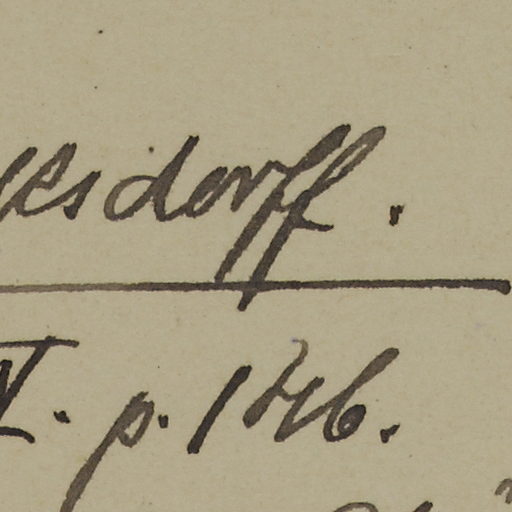 ksdorff.
V. p. 146.